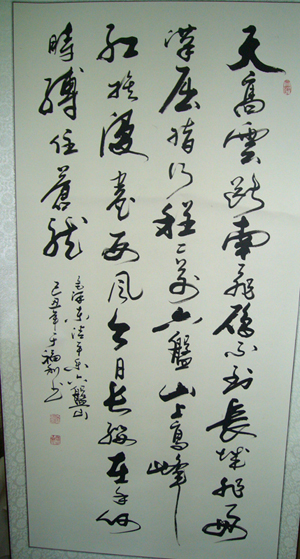 天高雲斷南飛雁不到長城非好
漢屈指行程二萬六盤山上高峰
紅旗漫卷西風今日長纓在手何
時縛住蒼龍
毛澤東清平樂六盤山
己丑年于福利书